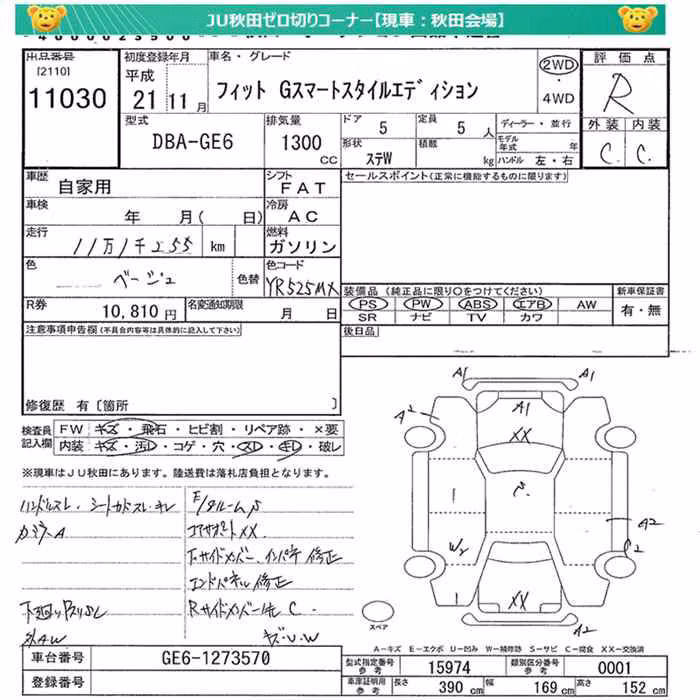 JU秋田ゼロ切りコーナー【現車：秋田会場】
出品番号
[2110]
11030
初度登録年月
平成
21 11 月
車名・グレード
フィット Gスマートスタイルエディション
2WD
・
4WD
評価点
R
外装 内装
C C
型式
DBA-GE6
排気量
1300
CC
ドア 5
定員 5 人
形状
ステW
積載
kg
ディーラー・並行
モデル年式 年
ハンドル 左・右
車歴
自家用
シフト
FAT
セールスポイント(正常に機能するものに限ります)
車検
年 月( 日)
冷房
AC
走行
11万1千255 km
燃料
ガソリン
色
ベージュ
色替
色コード
YR525MX
R券
10,810 円
名変通知期限
月 日
装備品 (純正品に限り○をつけてください)
PS PW ABS エアB AW
SR ナビ TV カワ
新車保証書
有・無
後日品
注意事項申告欄(不具合内容等は具体的に記入して下さい)
修復歴 有〔箇所 〕
検査員記入欄
FW キズ・飛石・ヒビ割・リペア跡・×要
内装 キズ・汚レ・コゲ・穴・スレ・キレ・破レ
※現車はJU秋田にあります。陸送費は落札店負担となります。
ハンドルスレ、シートカドスレ・キレ
カガミラーA
下廻りサビSL
コアサポートXX
Fサイドメンバー、インパネ修正
エンドパネル修正
Rサイドメンバー他 C.
キズ・U.W
A1
A1
A2
A1
XX
1
C
A2
W2
C2
1
XX
A2
スペア
A－キズ E－エクボ U－凹み W－補修跡 S－サビ C－腐食 XX－交換済
車台番号
GE6-1273570
登録番号
型式指定番号 15974
類別区分番号 0001
車庫証明用参考
長さ 390 cm
幅 169 cm
高さ 152 cm